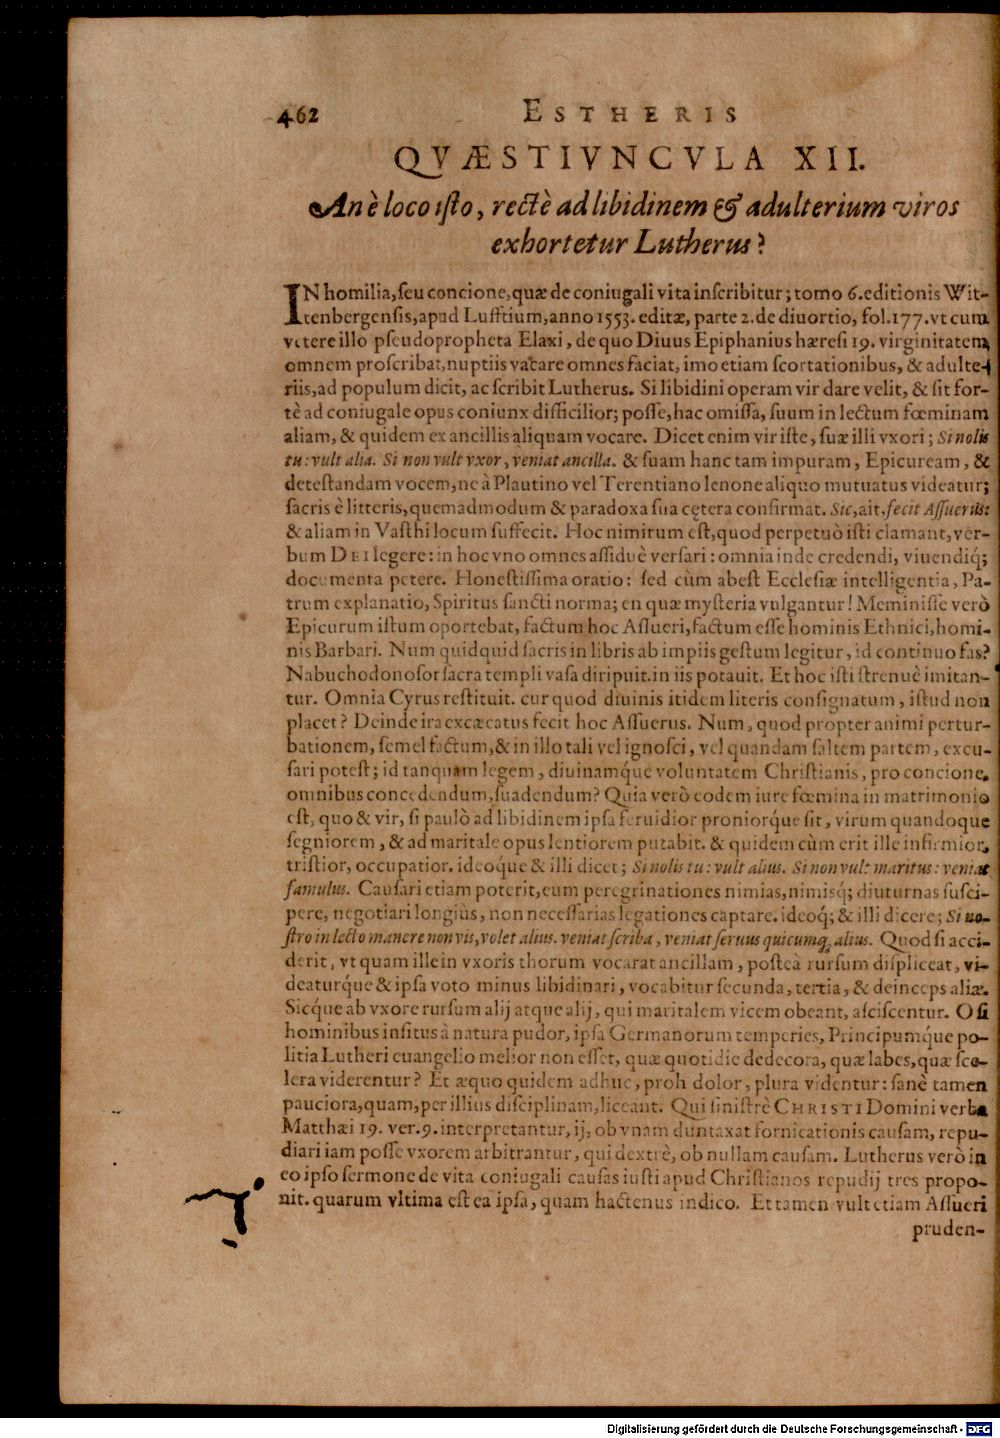 462 ESTHERIS
QVÆSTIVNCVLA XII.
An è loco isto, rectè ad libidinem & adulterium viros
exhortetur Lutherus?
IN homilia, seu concione, quæ de coniugali vita inscribitur; tomo 6. editionis Wit-
tenbergensis, apud Lufftium, anno 1553. editæ, parte 2. de diuortio, fol. 177. vt cum
vetere illo pseudopropheta Elaxi, de quo Diuus Epiphanius hæresi 19. virginitatem
omnem proscribat, nuptiis vacare omnes faciat, imo etiam scortationibus, & adulte-
riis, ad populum dicit, ac scribit Lutherus. Si libidini operam vir dare velit, & sit for-
tè ad coniugale opus coniunx difficilior; posse, hac omissa, suum in lectum fœminam
aliam, & quidem ex ancillis aliquam vocare. Dicet enim vir iste, suæ illi vxori; Si nolis
tu: vult alia. Si non vult vxor, veniat ancilla. & suam hanc tam impuram, Epicuream, &
detestandam vocem, ne à Plautino vel Terentiano lenone aliquo mutuatus videatur;
sacris è litteris, quemadmodum & paradoxa sua cętera confirmat. Sic, ait, fecit Assuerus:
& aliam in Vasthi locum suffecit. Hoc nimirum est, quod perpetuò isti clamant, ver-
bum DEI legere: in hoc vno omnes assiduè versari: omnia inde credendi, viuendiq́;
documenta petere. Honestissima oratio: sed cùm abest Ecclesiæ intelligentia, Pa-
trum explanatio, Spiritus sancti norma; en quæ mysteria vulgantur! Meminisse verò
Epicurum istum oportebat, factum hoc Assueri, factum esse hominis Ethnici, homi-
nis Barbari. Num quidquid sacris in libris ab impiis gestum legitur, id continuo fas?
Nabuchodonosor sacra templi vasa diripuit. in iis potauit. Et hoc isti strenuè imitan-
tur. Omnia Cyrus restituit. cur quod diuinis itidem literis consignatum, istud non
placet? Deinde ira excæcatus fecit hoc Assuerus. Num, quod propter animi pertur-
bationem, semel factum, & in illo tali vel ignosci, vel quandam saltem partem, excu-
sari potest; id tanquam legem, diuinamq́ue voluntatem Christianis, pro concione,
omnibus concedendum, suadendum? Quia verò eodem iure fœmina in matrimonio
est, quo & vir, si paulò ad libidinem ipsa feruidior proniorq́ue sit, virum quandoque
segniorem, & ad maritale opus lentiorem putabit. & quidem cùm erit ille infirmior,
tristior, occupatior. ideoq́ue & illi dicet; Si nolis tu: vult alius. Si non vult maritus: veniat
famulus. Causari etiam poterit, eum peregrinationes nimias, nimisq́; diuturnas susci-
pere, negotiari longiùs, non necessarias legationes captare. ideoq́; & illi dicere; Si no-
stro in lecto manere non vis, volet alius. veniat scriba, veniat seruus quicumq; alius. Quod si acci-
derit, vt quam ille in vxoris thorum vocarat ancillam, posteà rursum displiceat, vi-
deaturq́ue & ipsa voto minus libidinari, vocabitur secunda, tertia, & deinceps aliæ.
Sicq́ue ab vxore rursum alij atque alij, qui maritalem vicem obeant, asciscentur. O si
hominibus insitus à natura pudor, ipsa Germanorum temperies, Principumq́ue po-
litia Lutheri euangelio melior non esset, quæ quotidie dedecora, quæ labes, quæ sce-
lera viderentur? Et æquo quidem adhuc, proh dolor, plura videntur: sanè tamen
pauciora, quam, per illius disciplinam, liceant. Qui sinistrè CHRISTI Domini verba
Matthæi 19. ver. 9. interpretantur, ij, ob vnam duntaxat fornicationis causam, repu-
diari iam posse vxorem arbitrantur, qui dextrè, ob nullam causam. Lutherus verò in
eo ipso sermone de vita coniugali causas iusti apud Christianos repudij tres propo-
nit. quarum vltima est ea ipsa, quam hactenus indico. Et tamen vult etiam Assueri
pruden-
Digitalisierung gefördert durch die Deutsche Forschungsgemeinschaft - DFG